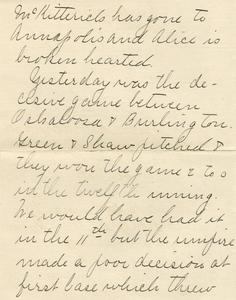 McKittericks has gone to
Annapolis and Alice is
broken hearted.
Yesterday was the de-
cisive game between
Oskaloosa & Burlington.
Green & Shaw pitched &
they won the game 2 to 0
in the twelfth inning.
We would have had it
in the 11th but the umpire
made a poor decision at
first base which threw